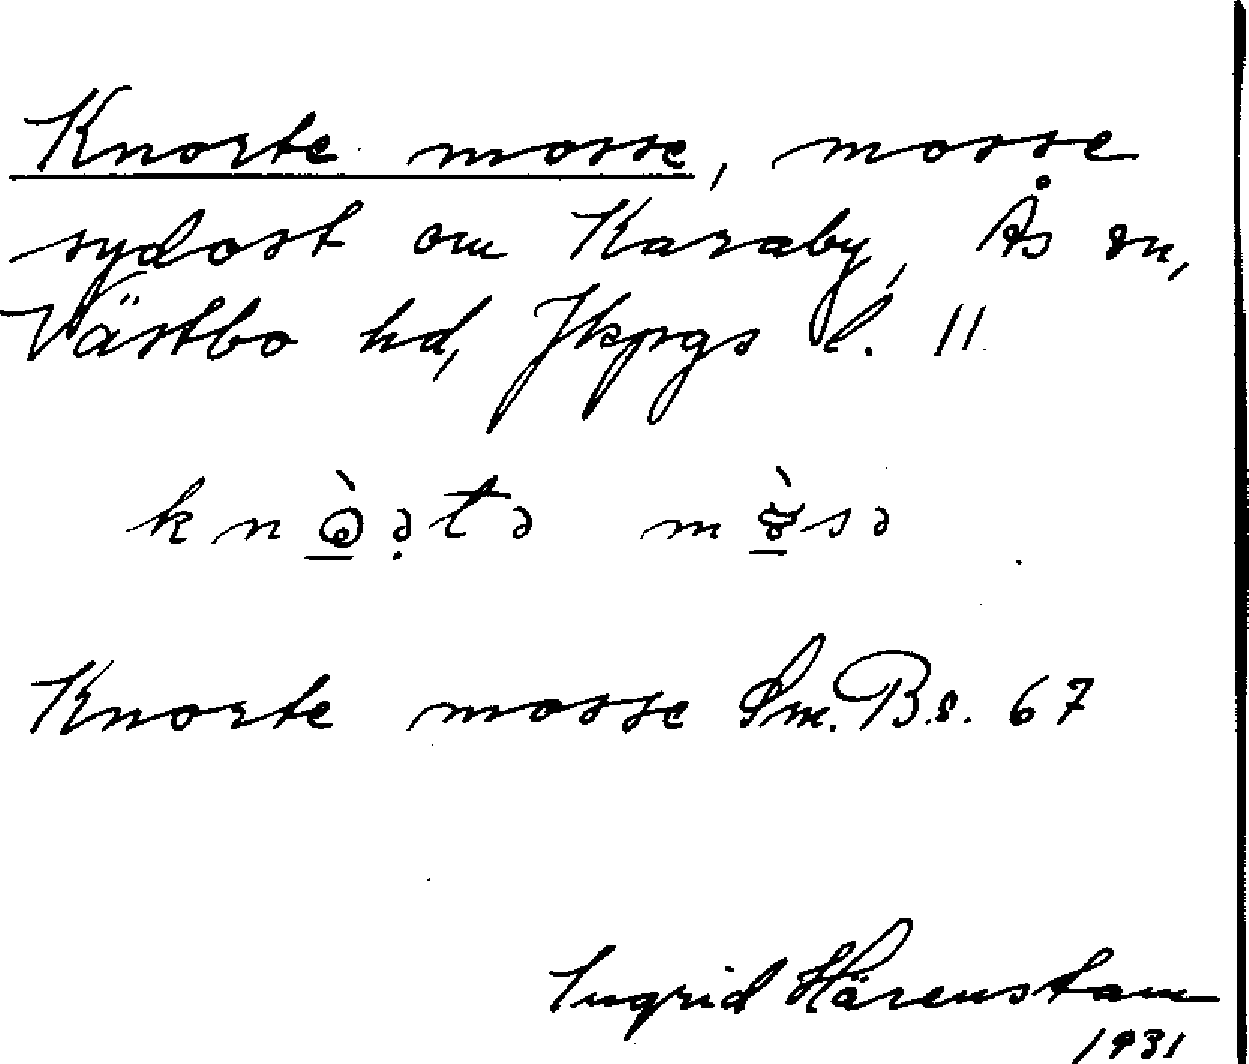 Knorte mosse, mosse
sydost om Karaby, Ås sn,
Västbo hd, Jkpgs l. 11
Knorte mosse Sm. Bs. 67
Ingrid Härenstam
1931